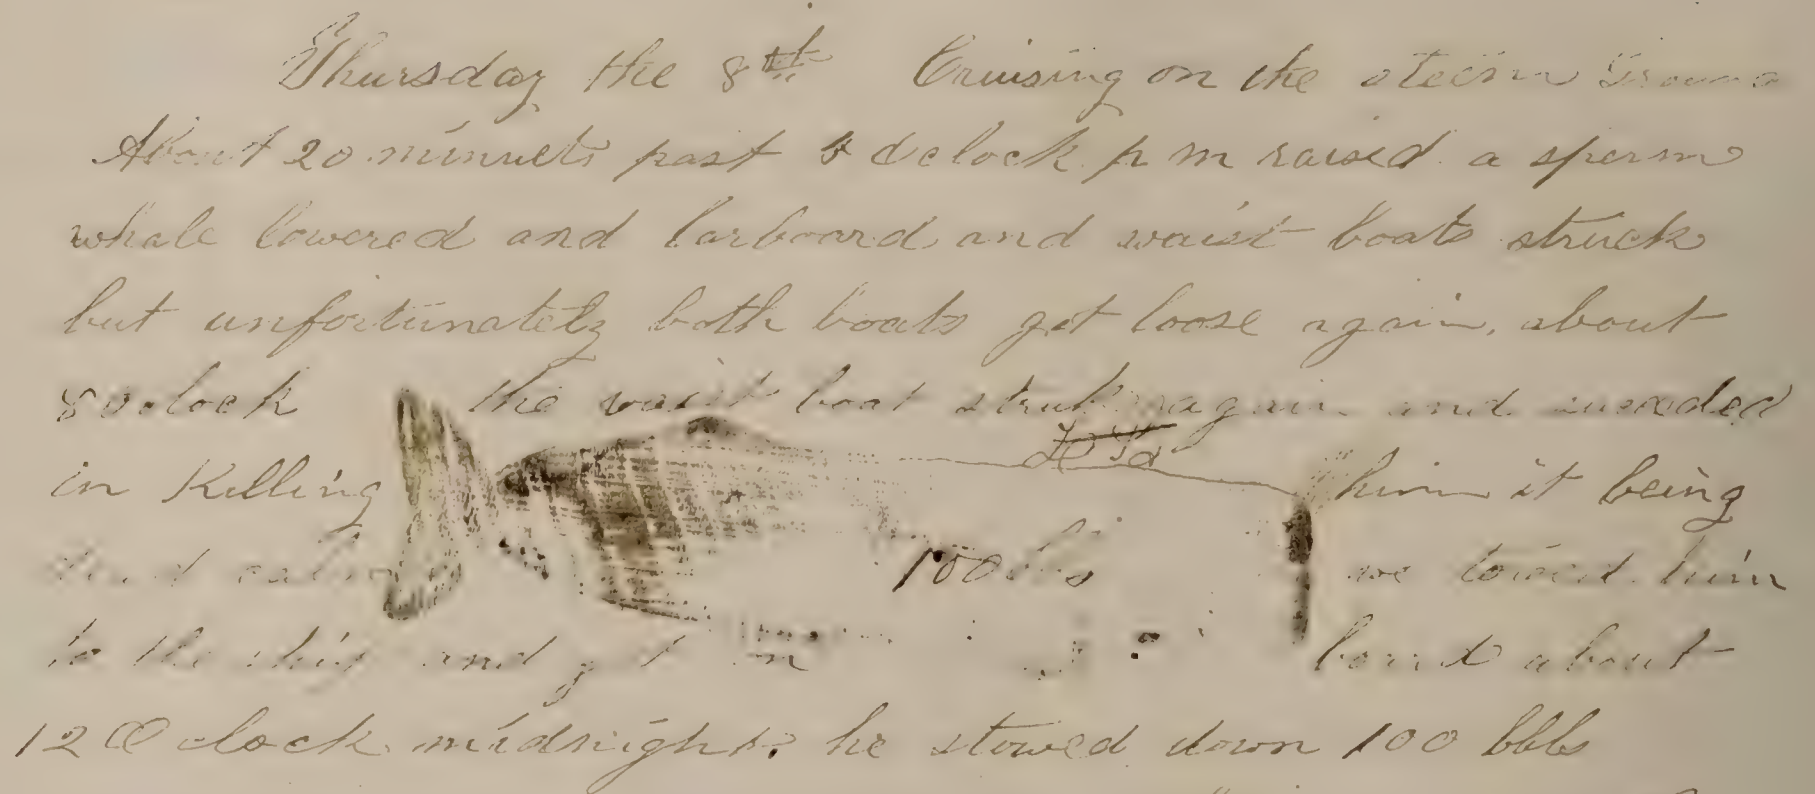 Thursday the 8th Cruising on the
About 20 minuets past o clock p m raised a sperm
whale lowered and larboard and waist boats struck
but unfortunately both boats got loose again, about
8 o clock the waist boat struk again and suceded
in Killing him it being
calm 100 bbls we towed him
to the ship and got on board about
12 O clock midnight. he stowed down 100 bbls